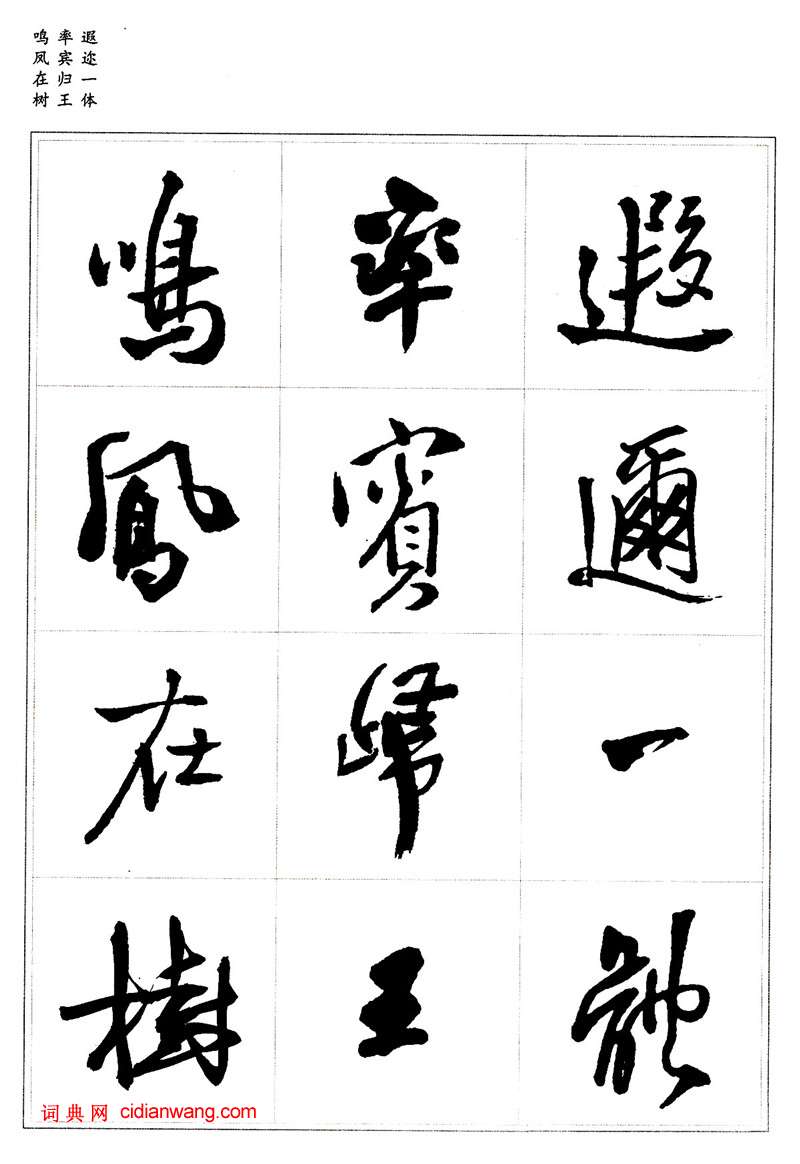 遐迩一体
率宾归王
鸣凤在树
遐邇一體
率賓歸王
鳴鳳在樹
词典网 cidianwang.com